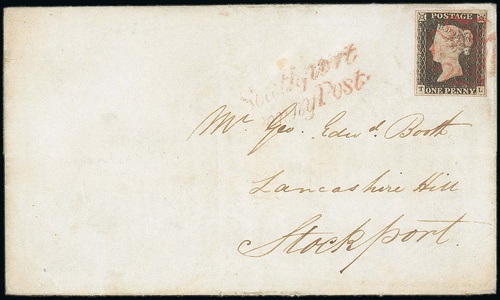 POSTAGE
ONE PENNY
Southport
Penny Post.
Mr. Geo. Edwd. Booth
Lancashire Hill
Stockport.